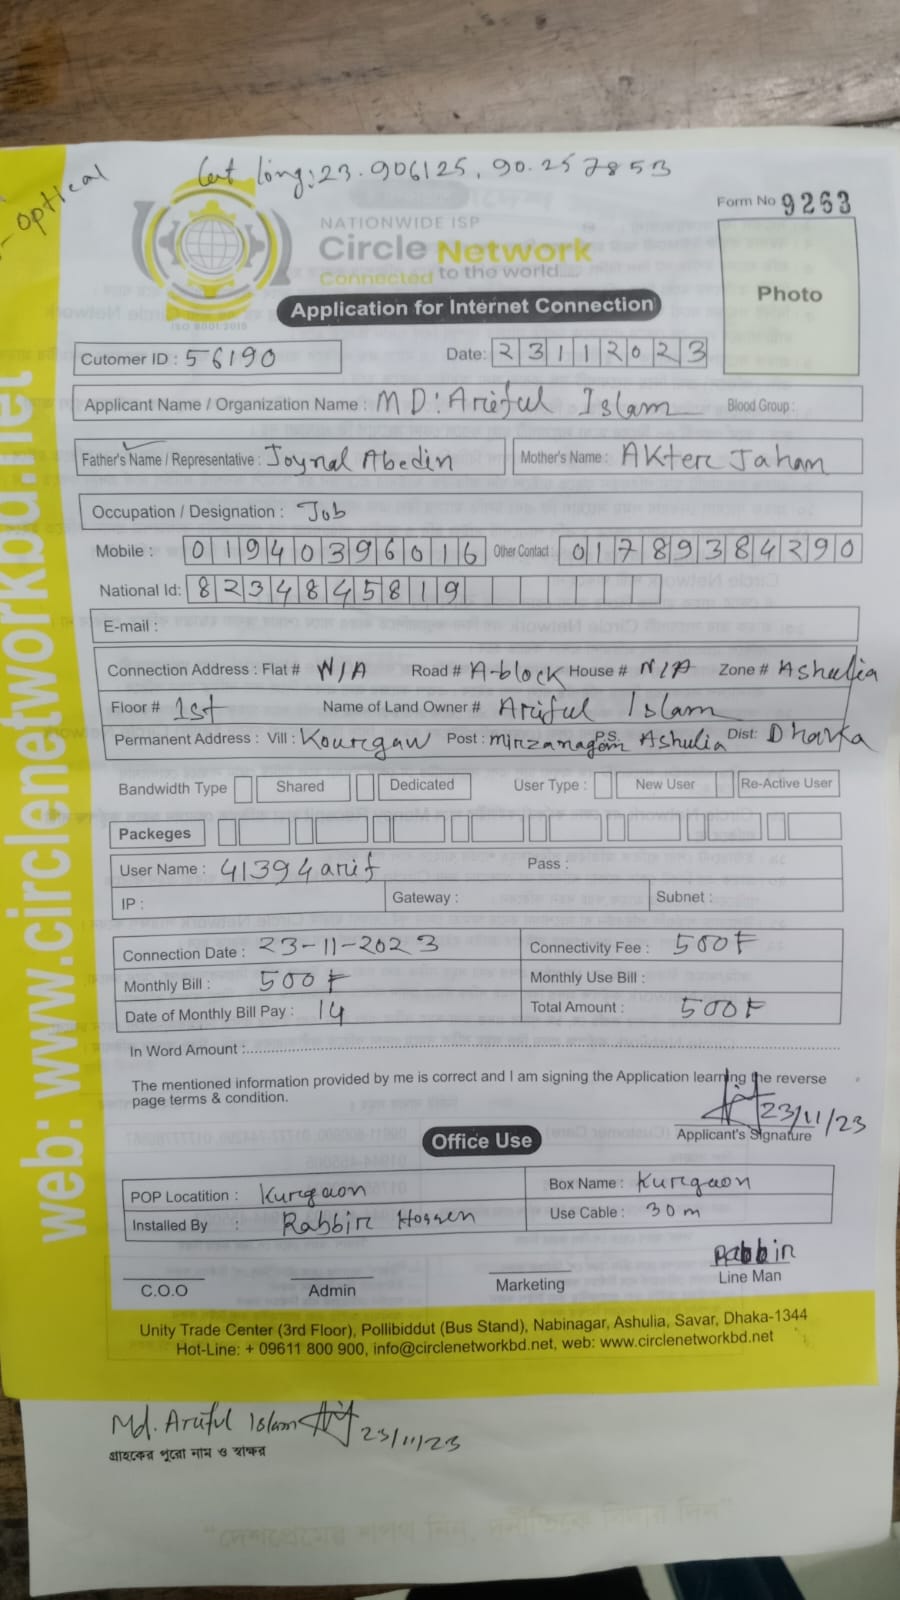 - optical
Lat long: 23.906125, 90.257853
Form No 9263
NATIONWIDE ISP
Circle Network
Connected to the world
ISO 9001:2015
Photo
Application for Internet Connection
Cutomer ID : 56190
Date: 23112023
Applicant Name / Organization Name : MD: Ariful Islam Blood Group :
Father's Name / Representative : Joynal Abedin Mother's Name : AKter Jahan
Occupation / Designation : Job
Mobile : 01940396016 Other Contact : 01789384290
National Id: 8234845819
E-mail :
Connection Address : Flat # N/A Road # A-block House # N/A Zone # Ashulia
Floor # 1st Name of Land Owner # Ariful Islam
Permanent Address : Vill : Kourgaw Post : P.S. Ashulia Dist: Dhaka
Bandwidth Type Shared Dedicated User Type : New User Re-Active User
Packeges
User Name : 41394arif Pass :
IP : Gateway : Subnet :
Connection Date : 23-11-2023 Connectivity Fee : 500৳
Monthly Bill : 500৳ Monthly Use Bill :
Date of Monthly Bill Pay : 14 Total Amount : 500৳
In Word Amount :
The mentioned information provided by me is correct and I am signing the Application learning the reverse
page terms & condition.
23/11/23
Applicant's Signature
Office Use
POP Locatition : Kurgaon Box Name : Kurgaon
Installed By : Rabbir Hossen Use Cable : 30m
Rabbir
C.O.O Admin Marketing Line Man
Unity Trade Center (3rd Floor), Pollibiddut (Bus Stand), Nabinagar, Ashulia, Savar, Dhaka-1344
Hot-Line: + 09611 800 900, info@circlenetworkbd.net, web: www.circlenetworkbd.net
web: www.circlenetworkbd.net
Md. Ariful Islam 23/11/23
গ্রাহকের পুরো নাম ও স্বাক্ষর